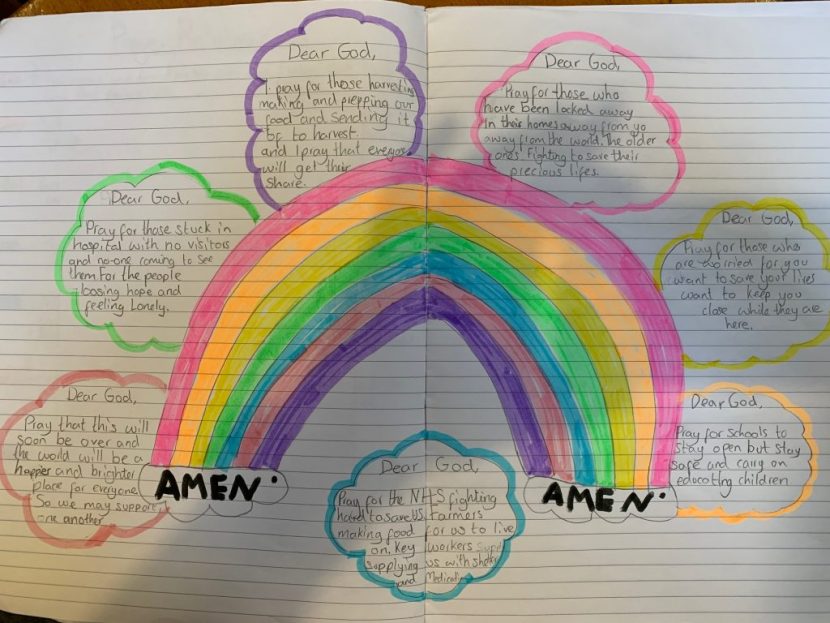 Dear God,
I pray for those harvesting
making and prepping our
food and sending it
of to harvest.
and I pray that everyone
will get their
share.
Dear God,
Pray for those who
have been locked away
In their homes away from yo
away from the world. The older
ones. Fighting to save their
precious lifes.
Dear God,
Pray for those stuck in
hospital with no visitors
and no-one coming to see
them. For the people
loosing hope and
feeling Lonely.
Dear God,
Pray for those who
are worried for you
want to save your lives
want to keep you
close while they are
here.
Dear God,
Pray that this will
soon be over and
the world will be a
happer and brighter
place for everyone
So we may support
one another
Dear God,
Pray for schools to
stay open but stay
safe and carry on
educating children
AMEN.
Dear God,
Pray for the NHS fighting
hard to save us. Farmers
making food for us to live
on. Key workers
supplying us with
and
AMEN.